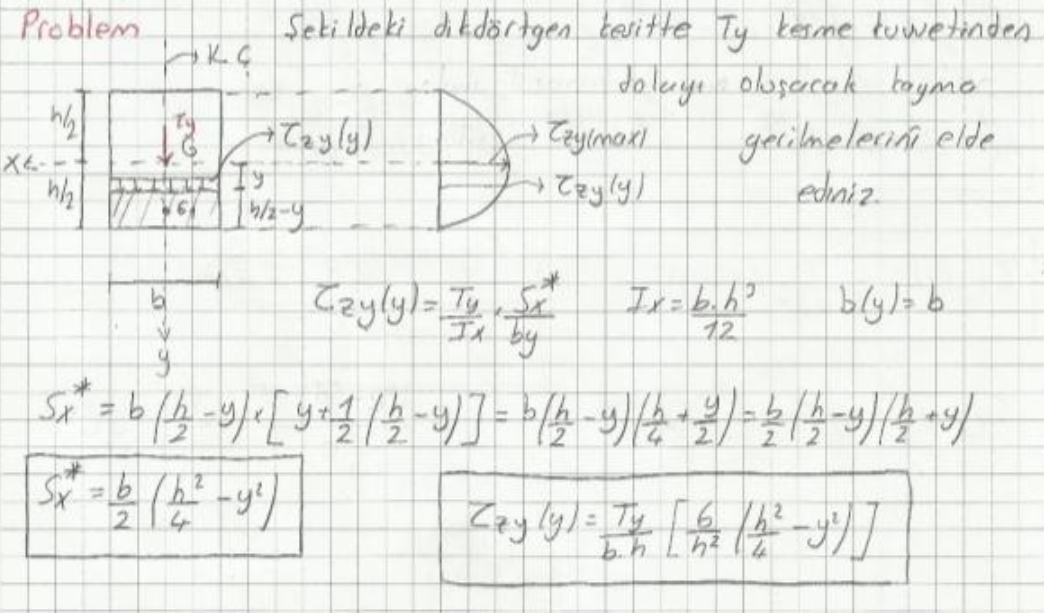 Problem
Şekildeki dikdörtgen kesitte Ty kesme kuvvetinden
dolayı oluşacak kayma
gerilmelerini elde
ediniz.
K Ç
h/2
Ty
G
τzy(y)
x
h/2
y
G1
h/2-y
b
y
τzy(max)
τzy(y)
τzy(y) = Ty/Ix . Sx*/by    Ix = b.h³/12    b(y) = b
Sx* = b (h/2 - y) x [y + 1/2 (h/2 - y)] = b(h/2 - y)(h/4 + y/2) = b/2 (h/2 - y)(h/2 + y)
Sx* = b/2 (h²/4 - y²)
τzy(y) = Ty/b.h [6/h² (h²/4 - y²)]